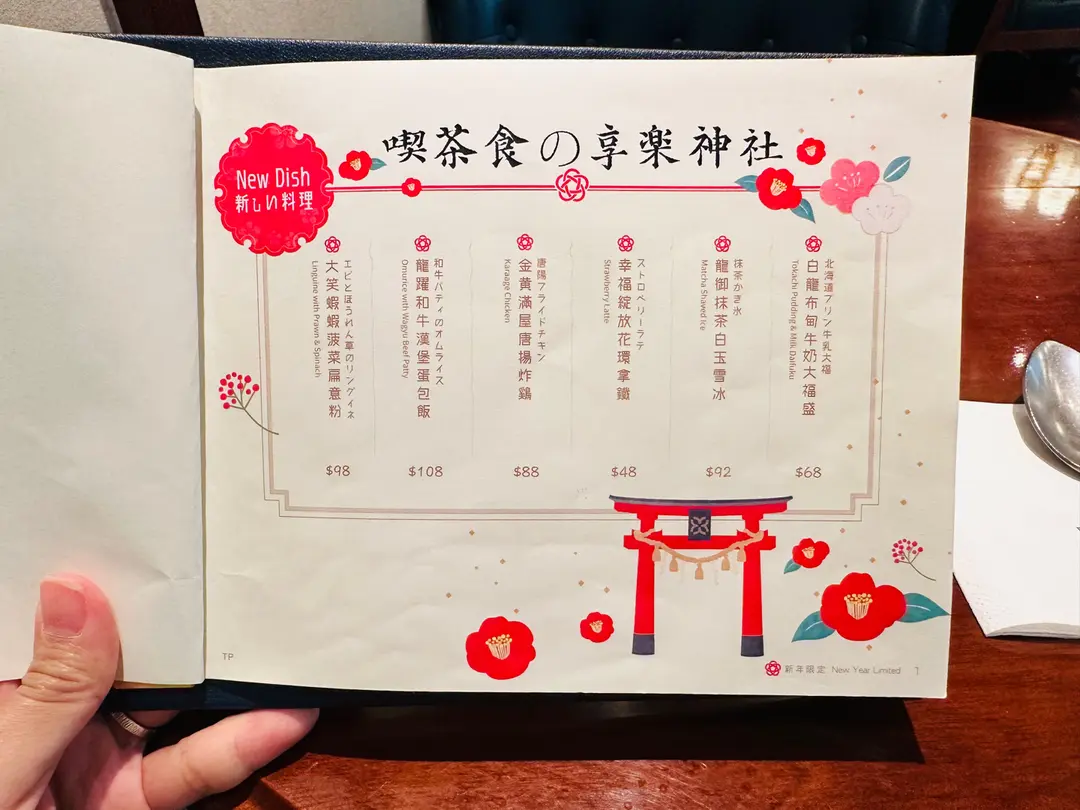 New Dish
新しい料理
喫茶食の享楽神社
北海道プリン牛乳大福
白龍布甸牛奶大福盛
Tokachi Pudding & Milk Daifuku
$68
抹茶かき氷
龍御抹茶白玉雪冰
Matcha Shaved Ice
$92
ストロベリーラテ
幸福綻放花環拿鐵
Strawberry Latte
$48
唐陽フライドチキン
金黄滿屋唐揚炸鷄
Karaage Chicken
$88
和牛パティのオムライス
龍躍和牛漢堡蛋包飯
Omurice with Wagyu Beef Patty
$108
エビとほうれん草のリングイネ
大笑蝦蝦菠菜扁意粉
Linguine with Prawn & Spinach
$98
TP
新年限定 New Year Limited 1